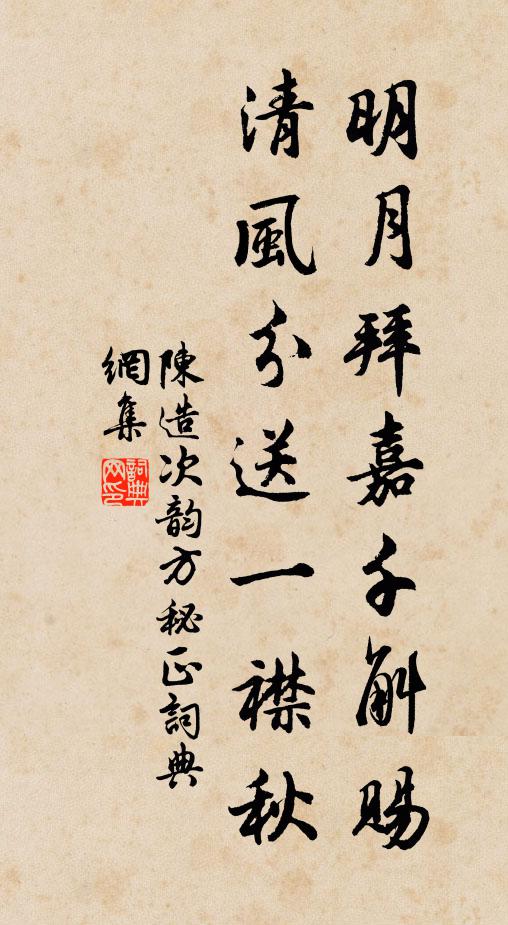 明月拜嘉千斛賜
清風分送一襟秋
陳造次韵方秘正詞典
網集
詞典网印